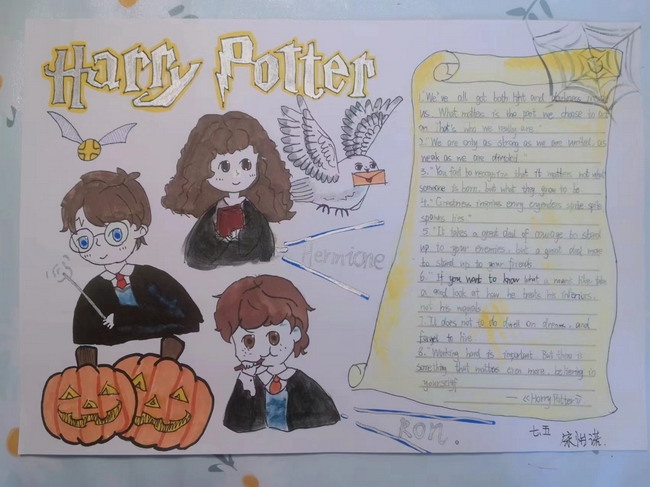 Harry Potter
1. "We've all got both light and darkness inside
us. What matters is the part we choose to act
on. That's who we really are."
2. "We are only as strong as we are united, as
weak as we are divided."
3. "You fail to recognize that it matters not what
someone is born, but what they grow to be.
4. "Greatness inspires envy, engenders spite, spite
spawns lies."
5. "It takes a great deal of courage to stand
up to your enemies, but a great deal more
to stand up to your friends.
6. "If you want to know what a man's like, take
a look at how he treats his inferiors,
not his equals.
7. It does not to do dwell on dreams, and
forget to live.
8. "Working hard is important. But there is
something that matters even more, believing in
yourself
——《Harry Potter》
Hermione
Ron.
七.五